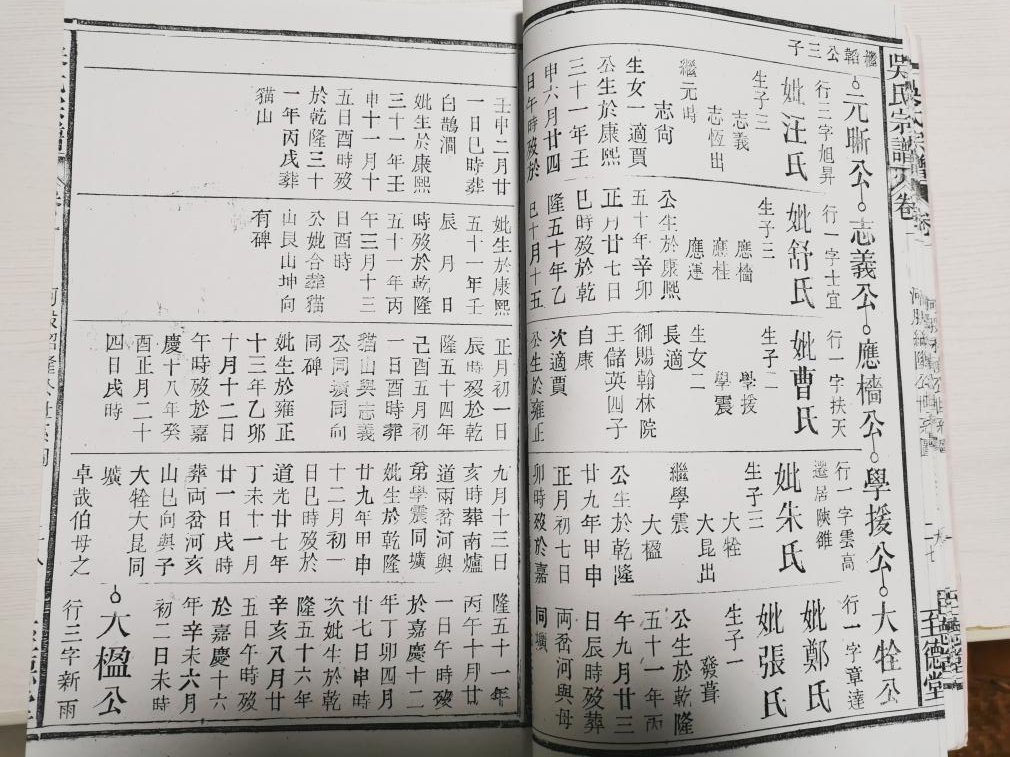 吳氏宗譜
卷一
至德堂
韜公三子
元晰公
行三字旭昇
妣汪氏
生子三
志義
志恆出
志尙
繼元
生女一適賈
公生於康熙
三十一年壬
申六月廿四
日午時歿於
壬申二月廿
一日巳時葬
白鵲澗
妣生於康熙
三十一年壬
申十一月十
五日酉時歿
於乾隆三十
一年丙戌葬
貓山
志義公
行一字士宜
妣舒氏
生子三
應檣
應桂
應運
公生於康熙
五十年辛卯
正月廿七日
巳時歿於乾
隆五十年乙
巳十月十五
妣生於康熙
五十一年壬
辰 月 日
時歿於乾隆
五十一年丙
午三月十三
日酉時
公妣合葬貓
山艮山坤向
有碑
應檣公
行一字扶天
妣曹氏
生子二
學援
學震
生女二
長適
御賜翰林院
王儲英四子
自康
次適賈
公生於雍正
正月初一日
辰時歿於乾
隆五十四年
己酉五月初
一日酉時葬
貓山與志義
公同壙同向
同碑
妣生於雍正
十三年乙卯
十月十二日
午時歿於嘉
慶十八年癸
酉正月二十
四日戌時
學援公
行一字雲高
遷居陝雒
妣朱氏
生子三
大牷
大昆出
繼學震
大楹
公生於乾隆
廿九年甲申
正月初七日
卯時歿於嘉
九月十三日
亥時葬南爐
道兩岔河與
弟學震同壙
妣生於乾隆
廿九年甲申
十二月初一
日巳時歿於
道光廿七年
丁未十一月
廿一日戌時
葬両岔河亥
山巳向與子
大牷大昆同
壙
卓哉伯母之
大牷公
行一字章達
妣鄭氏
妣張氏
生子一
發葺
公生於乾隆
五十一年丙
午九月廿三
日辰時歿葬
両岔河與母
同壙
隆五十一年
丙午十月廿
一日午時歿
於嘉慶十二
年丁卯四月
廿七日申時
次妣生於乾
隆五十六年
辛亥八月廿
五日午時歿
於嘉慶十六
年辛未六月
初二日未時
大楹公
行三字新雨